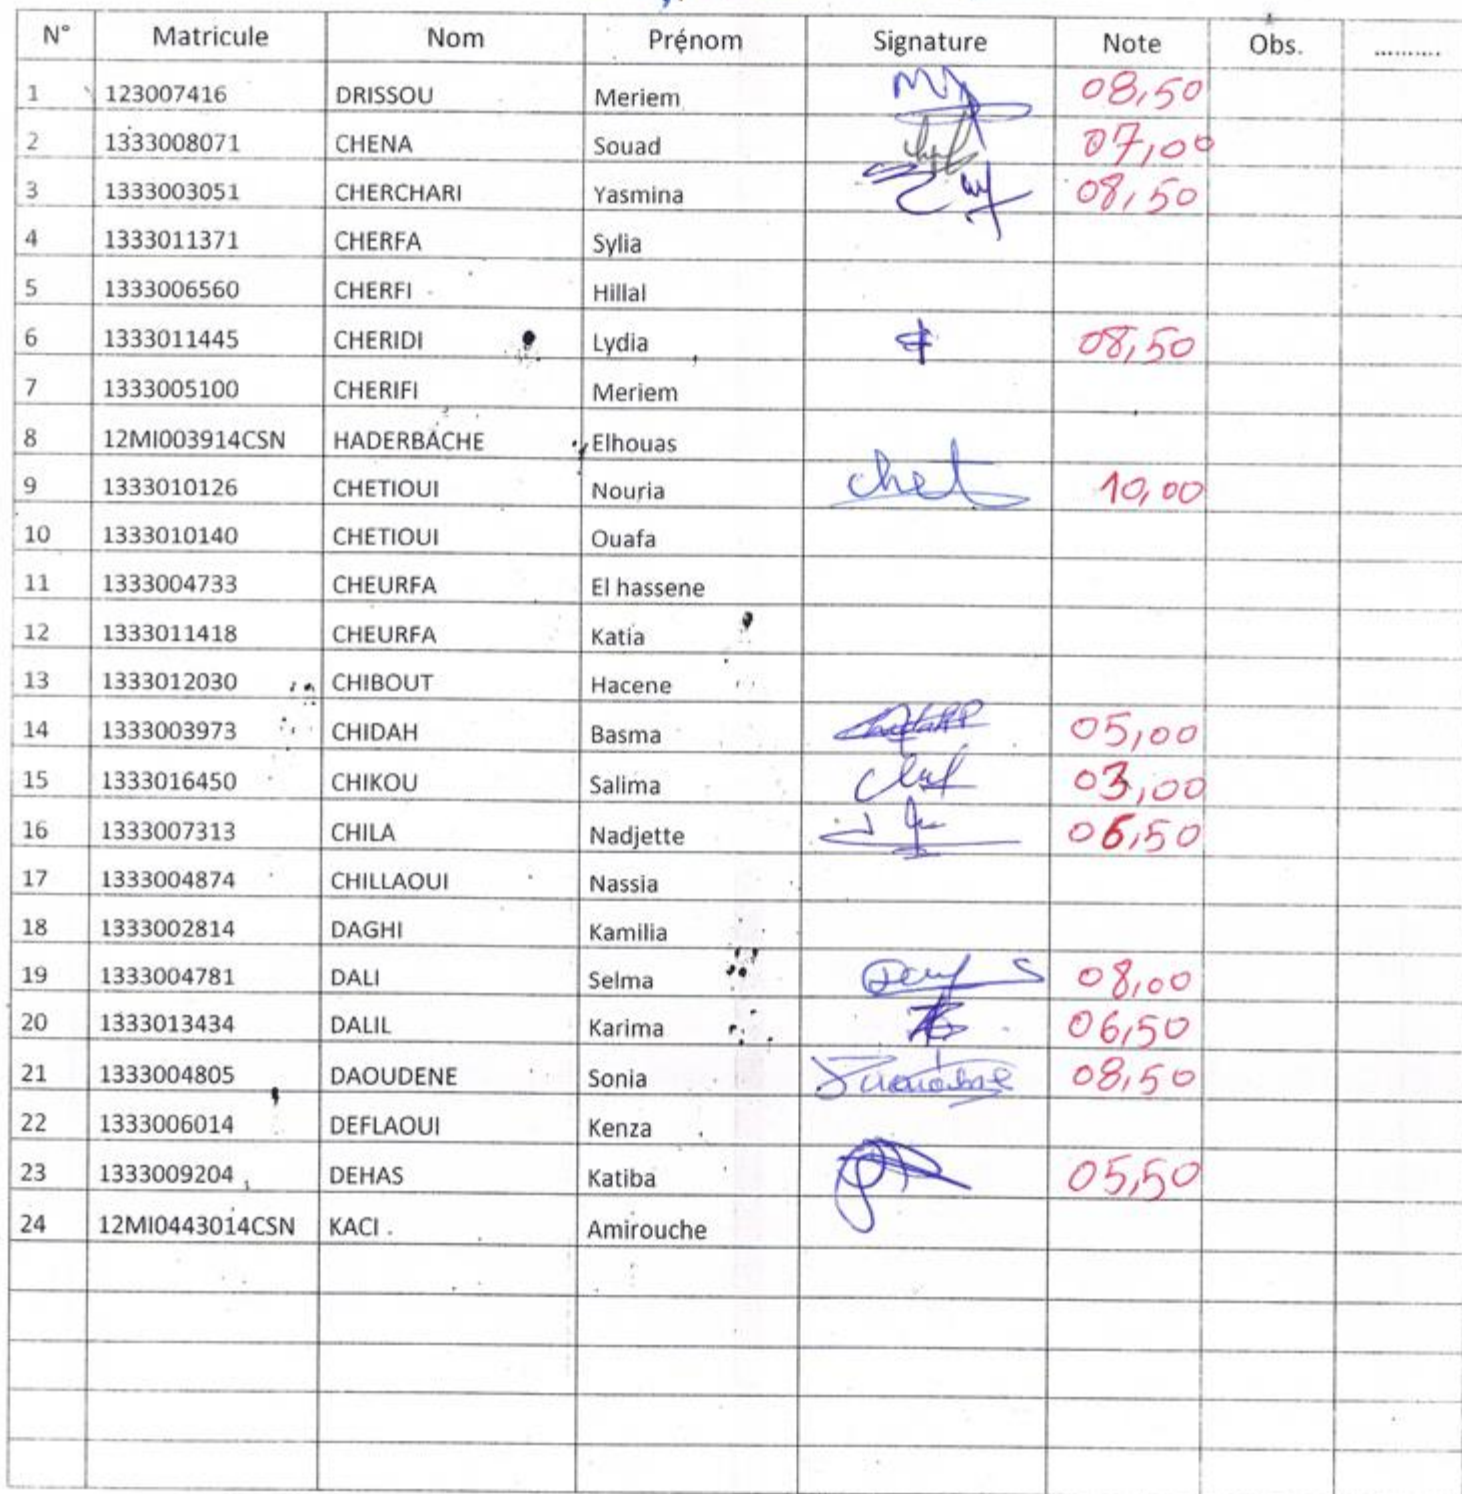 N° Matricule Nom Prénom Signature Note Obs. ..........
1 123007416 DRISSOU Meriem 08,50
2 1333008071 CHENA Souad 07,00
3 1333003051 CHERCHARI Yasmina 08,50
4 1333011371 CHERFA Sylia
5 1333006560 CHERFI Hillal
6 1333011445 CHERIDI Lydia 08,50
7 1333005100 CHERIFI Meriem
8 12MI003914CSN HADERBACHE Elhouas
9 1333010126 CHETIOUI Nouria chet 10,00
10 1333010140 CHETIOUI Ouafa
11 1333004733 CHEURFA El hassene
12 1333011418 CHEURFA Katia
13 1333012030 CHIBOUT Hacene
14 1333003973 CHIDAH Basma 05,00
15 1333016450 CHIKOU Salima 03,00
16 1333007313 CHILA Nadjette 06,50
17 1333004874 CHILLAOUI Nassia
18 1333002814 DAGHI Kamilia
19 1333004781 DALI Selma 08,00
20 1333013434 DALIL Karima 06,50
21 1333004805 DAOUDENE Sonia 08,50
22 1333006014 DEFLAOUI Kenza
23 1333009204 DEHAS Katiba 05,50
24 12MI0443014CSN KACI Amirouche